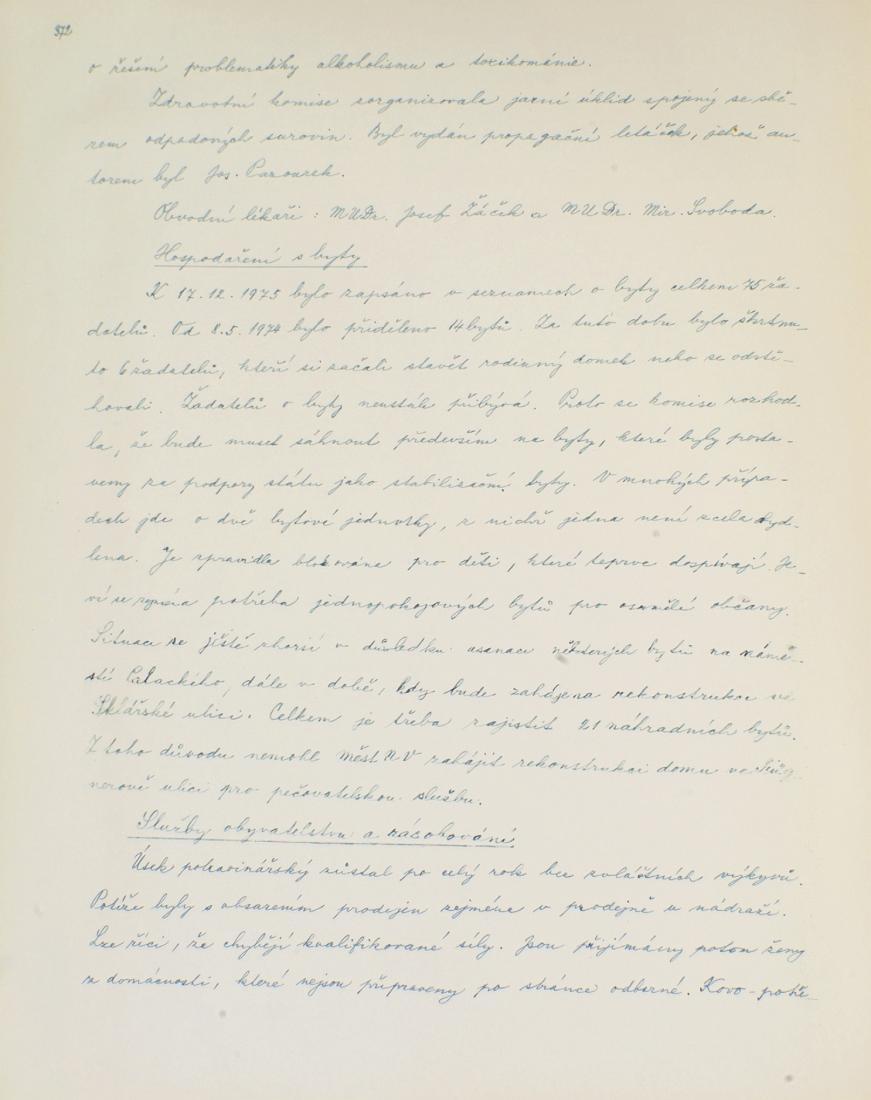 372
o řešení problematiky alkoholismu a toxikománie.
Zdravotní komise zorganizovala jarní úklid spojený se sbě-
rem odpadových surovin. Byl vydán propagační letáček, jehož au-
torem byl Jos. Parourek.
Obvodní lékaři: MUDr. Josef Žáček a MUDr. Mir. Svoboda.
Hospodaření s byty
K 17.12.1975 bylo zapsáno v seznamech o byty celkem 75 ža-
datelů. Od 8.5.1974 bylo přiděleno 14 bytů. Za tuto dobu bylo škrtnu-
to 6 žadatelů, kteří si začali stavět rodinný domek nebo se odstě-
hovali. Žadatelů o byty neustále přibývá. Proto se komise rozhod-
la, že bude muset sáhnout především na byty, které byly posta-
veny za podpory státu jako stabilizační byty. V mnohých přípa-
dech jde o dvě bytové jednotky, z nichž jedna není zcela obyd-
lena. Je zpravidla blokována pro děti, které teprve dospívají. Je-
ví se potřeba jednopokojových bytů pro osamělé občany.
Situace se jistě zhorší v důsledku asanace některých bytů na námě-
stí Palackého, dále v době, kdy bude zahájena rekonstrukce ve
Sklářské ulici. Celkem je třeba zajistit 21 náhradních bytů.
Z toho důvodu nemohl Měst NV zahájit rekonstrukci domu ve
nerově ulici pro pečovatelskou službu.
Služby obyvatelstvu a zásobování
Úsek potravinářský zůstal po celý rok bez zvláštních výkyvů.
Potíže byly s obsazením prodejen zejména v prodejně u nádraží.
Lze říci, že chybějí kvalifikované síly. Jsou přijímány potom ženy
z domácnosti, které nejsou připraveny po stránce odborné. Kovo-potře-